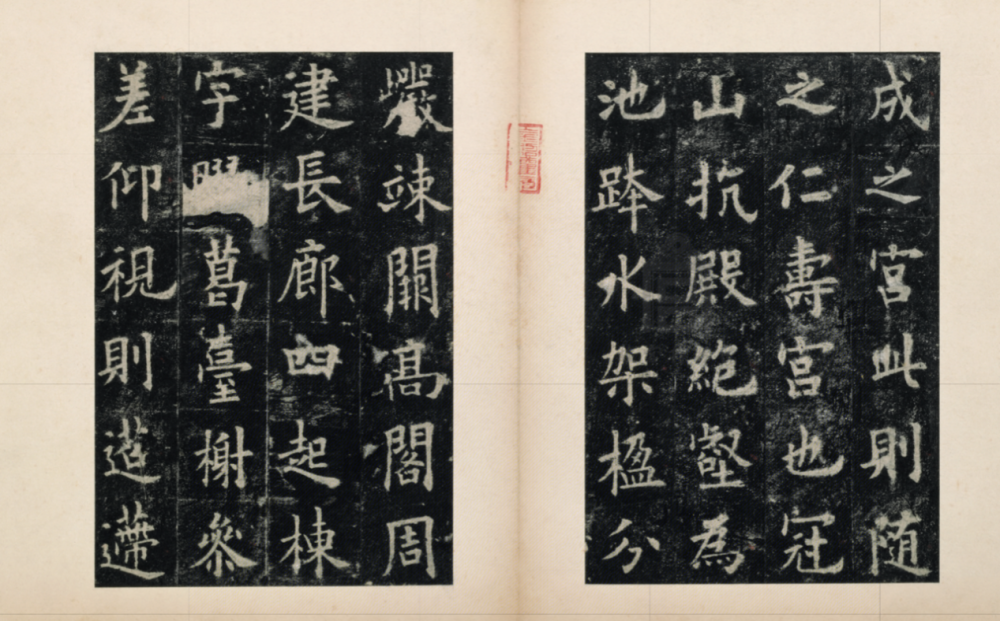 成之宮此則随
之仁壽宮也冠
山抗殿絶壑為
池跨水架楹分
巖竦闕髙閣周
建長廊四起棟
宇葛臺榭參
差仰視則迢遰